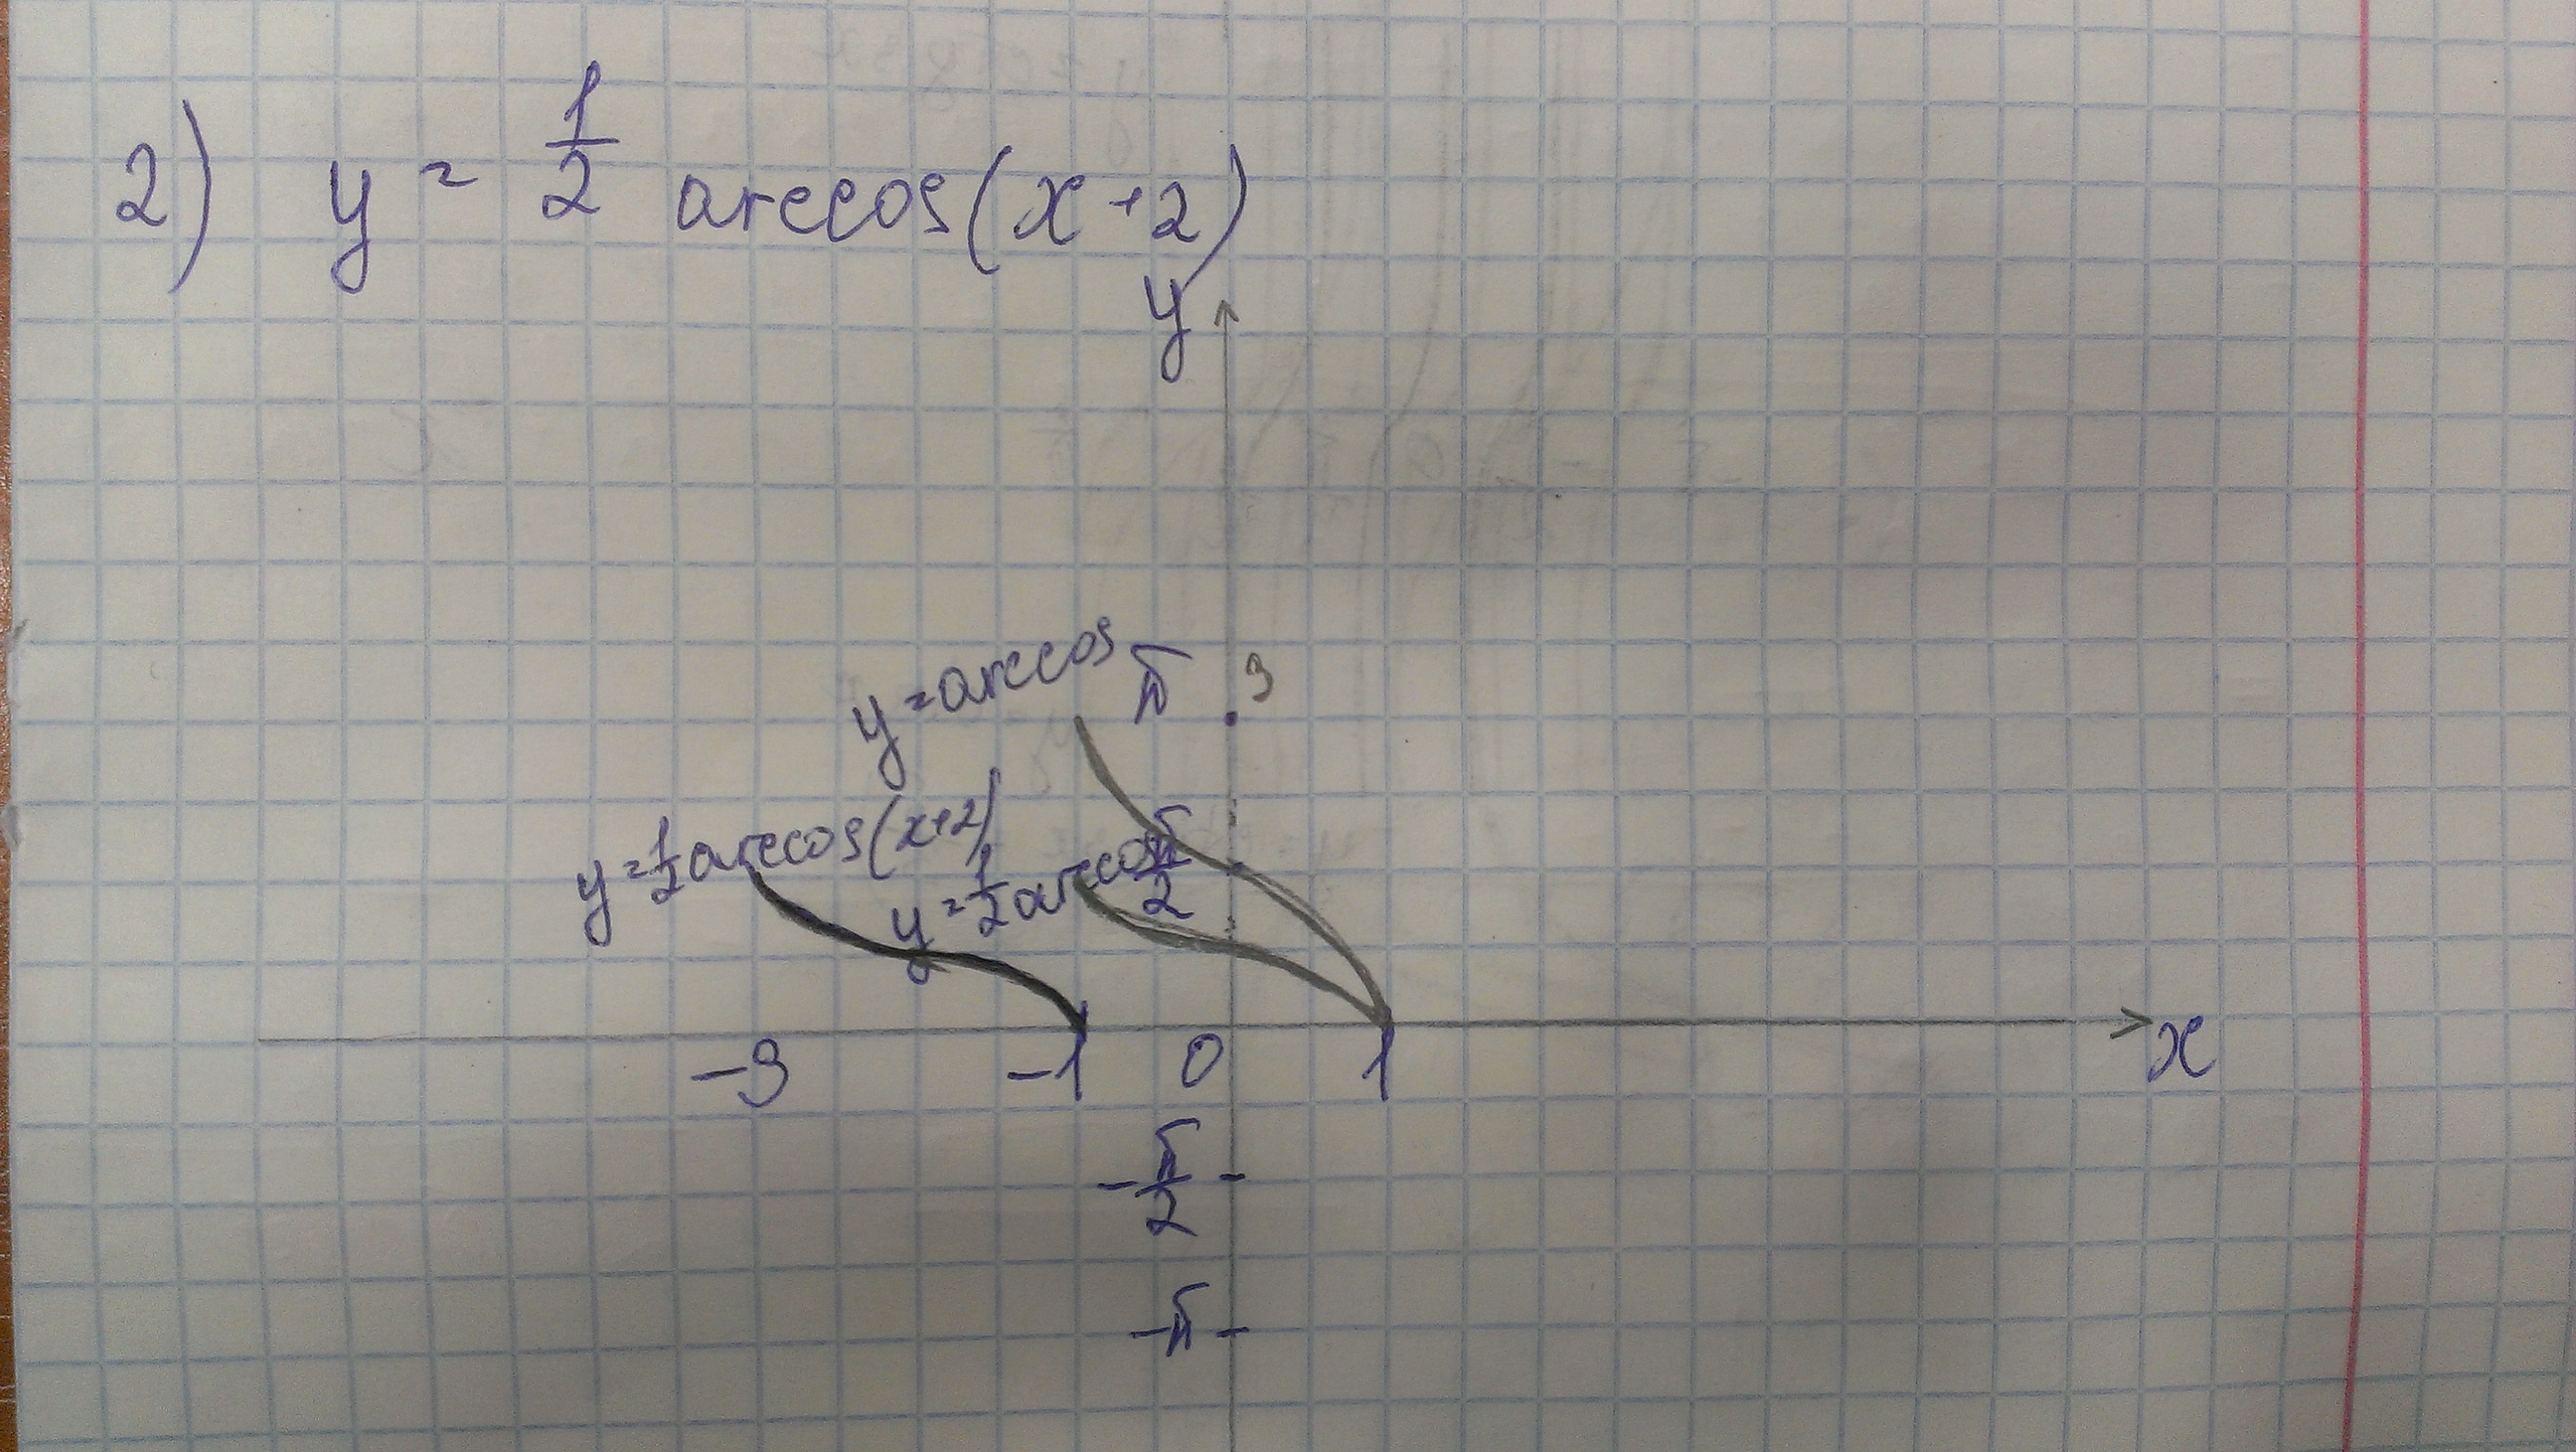 2) y = 1/2 arccos(x+2)
y
y = arccos π 3
y = 1/2 arccos(x+2)
y = 1/2 arccos π/2
-3 -1 0 1 x
-π/2
-π